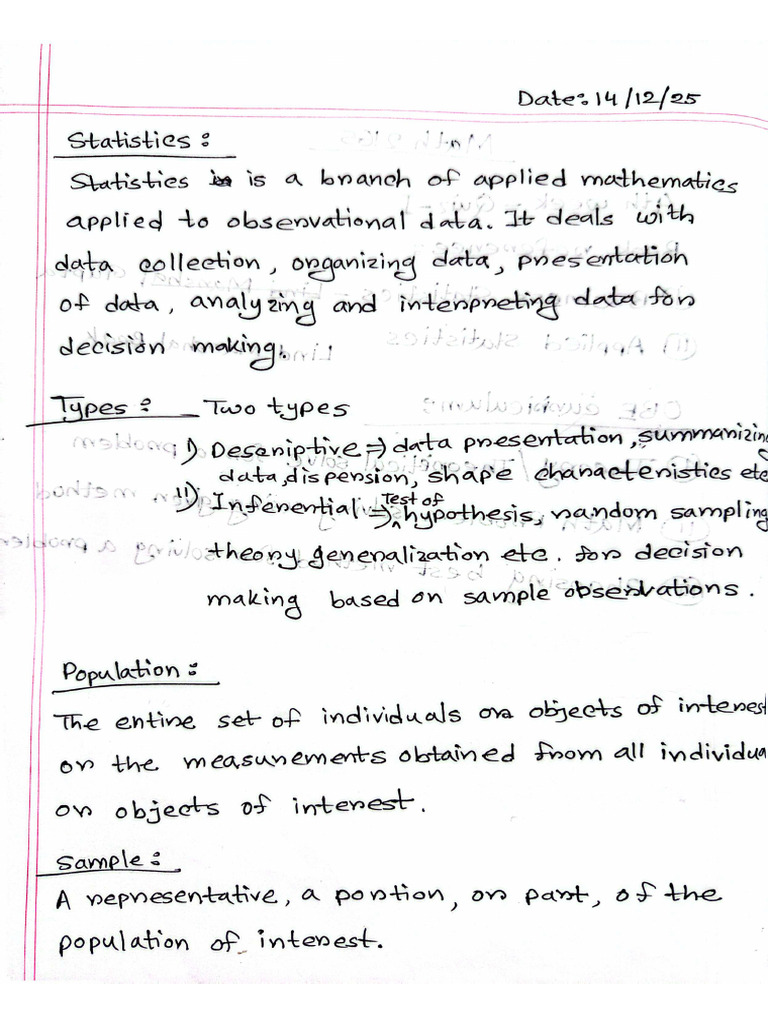 Date: 14/12/25
Statistics:
Statistics is a branch of applied mathematics
applied to observational data. It deals with
data collection, organizing data, presentation
of data, analyzing and interpreting data for
decision making.
Types: Two types
i) Descriptive ⇒ data presentation, summarizing
data, dispersion, shape characteristics etc
ii) Inferential ⇒ Test of hypothesis, random sampling
theory generalization etc. for decision
making based on sample observations.
Population:
The entire set of individuals or objects of interest
or the measurements obtained from all individua
or objects of interest.
Sample:
A representative, a portion, or part, of the
population of interest.